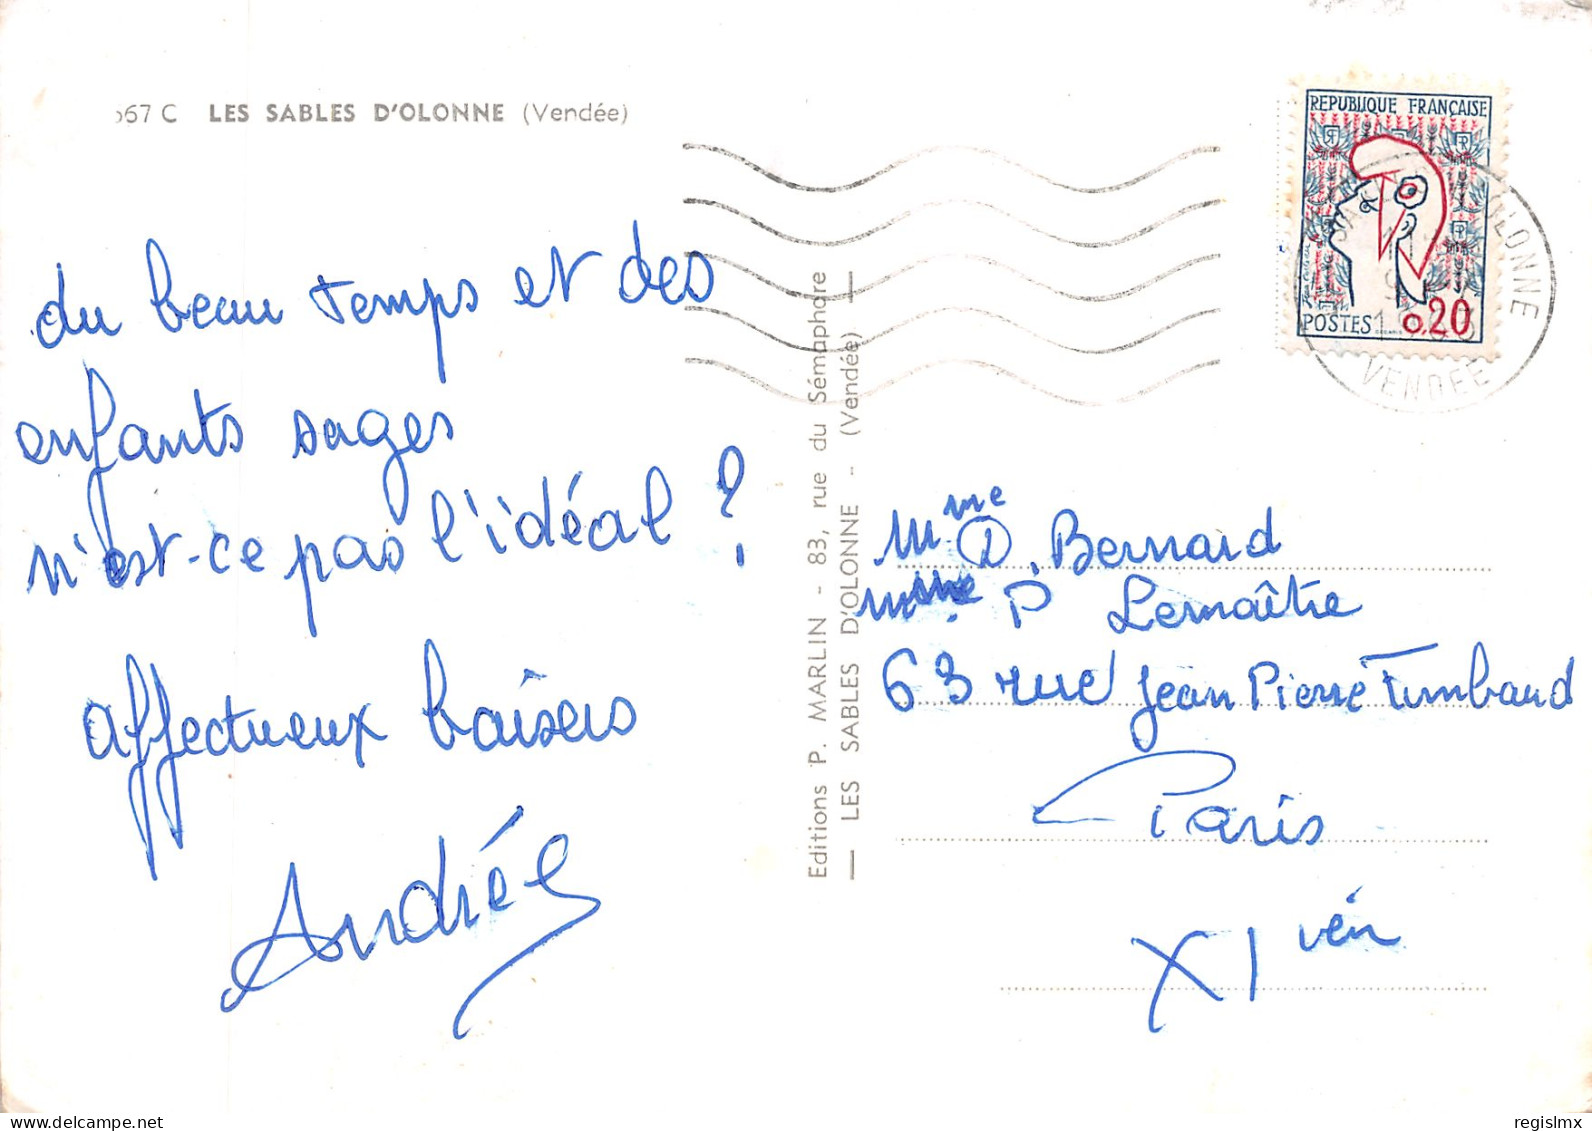 567 C LES SABLES D'OLONNE (Vendée)
du beau temps et des
enfants sages
n'est-ce pas l'idéal ?
affectueux baisers
Andrée
Editions P. MARLIN - 83, rue du Sémaphore
— LES SABLES D'OLONNE - (Vendée) —
REPUBLIQUE FRANÇAISE
POSTES 0,20
OLONNE
VENDEE
Mme D. Bernard
Mme P. Lemaître
63 rue Jean Pierre Timbaud
Paris
XI
regislmx